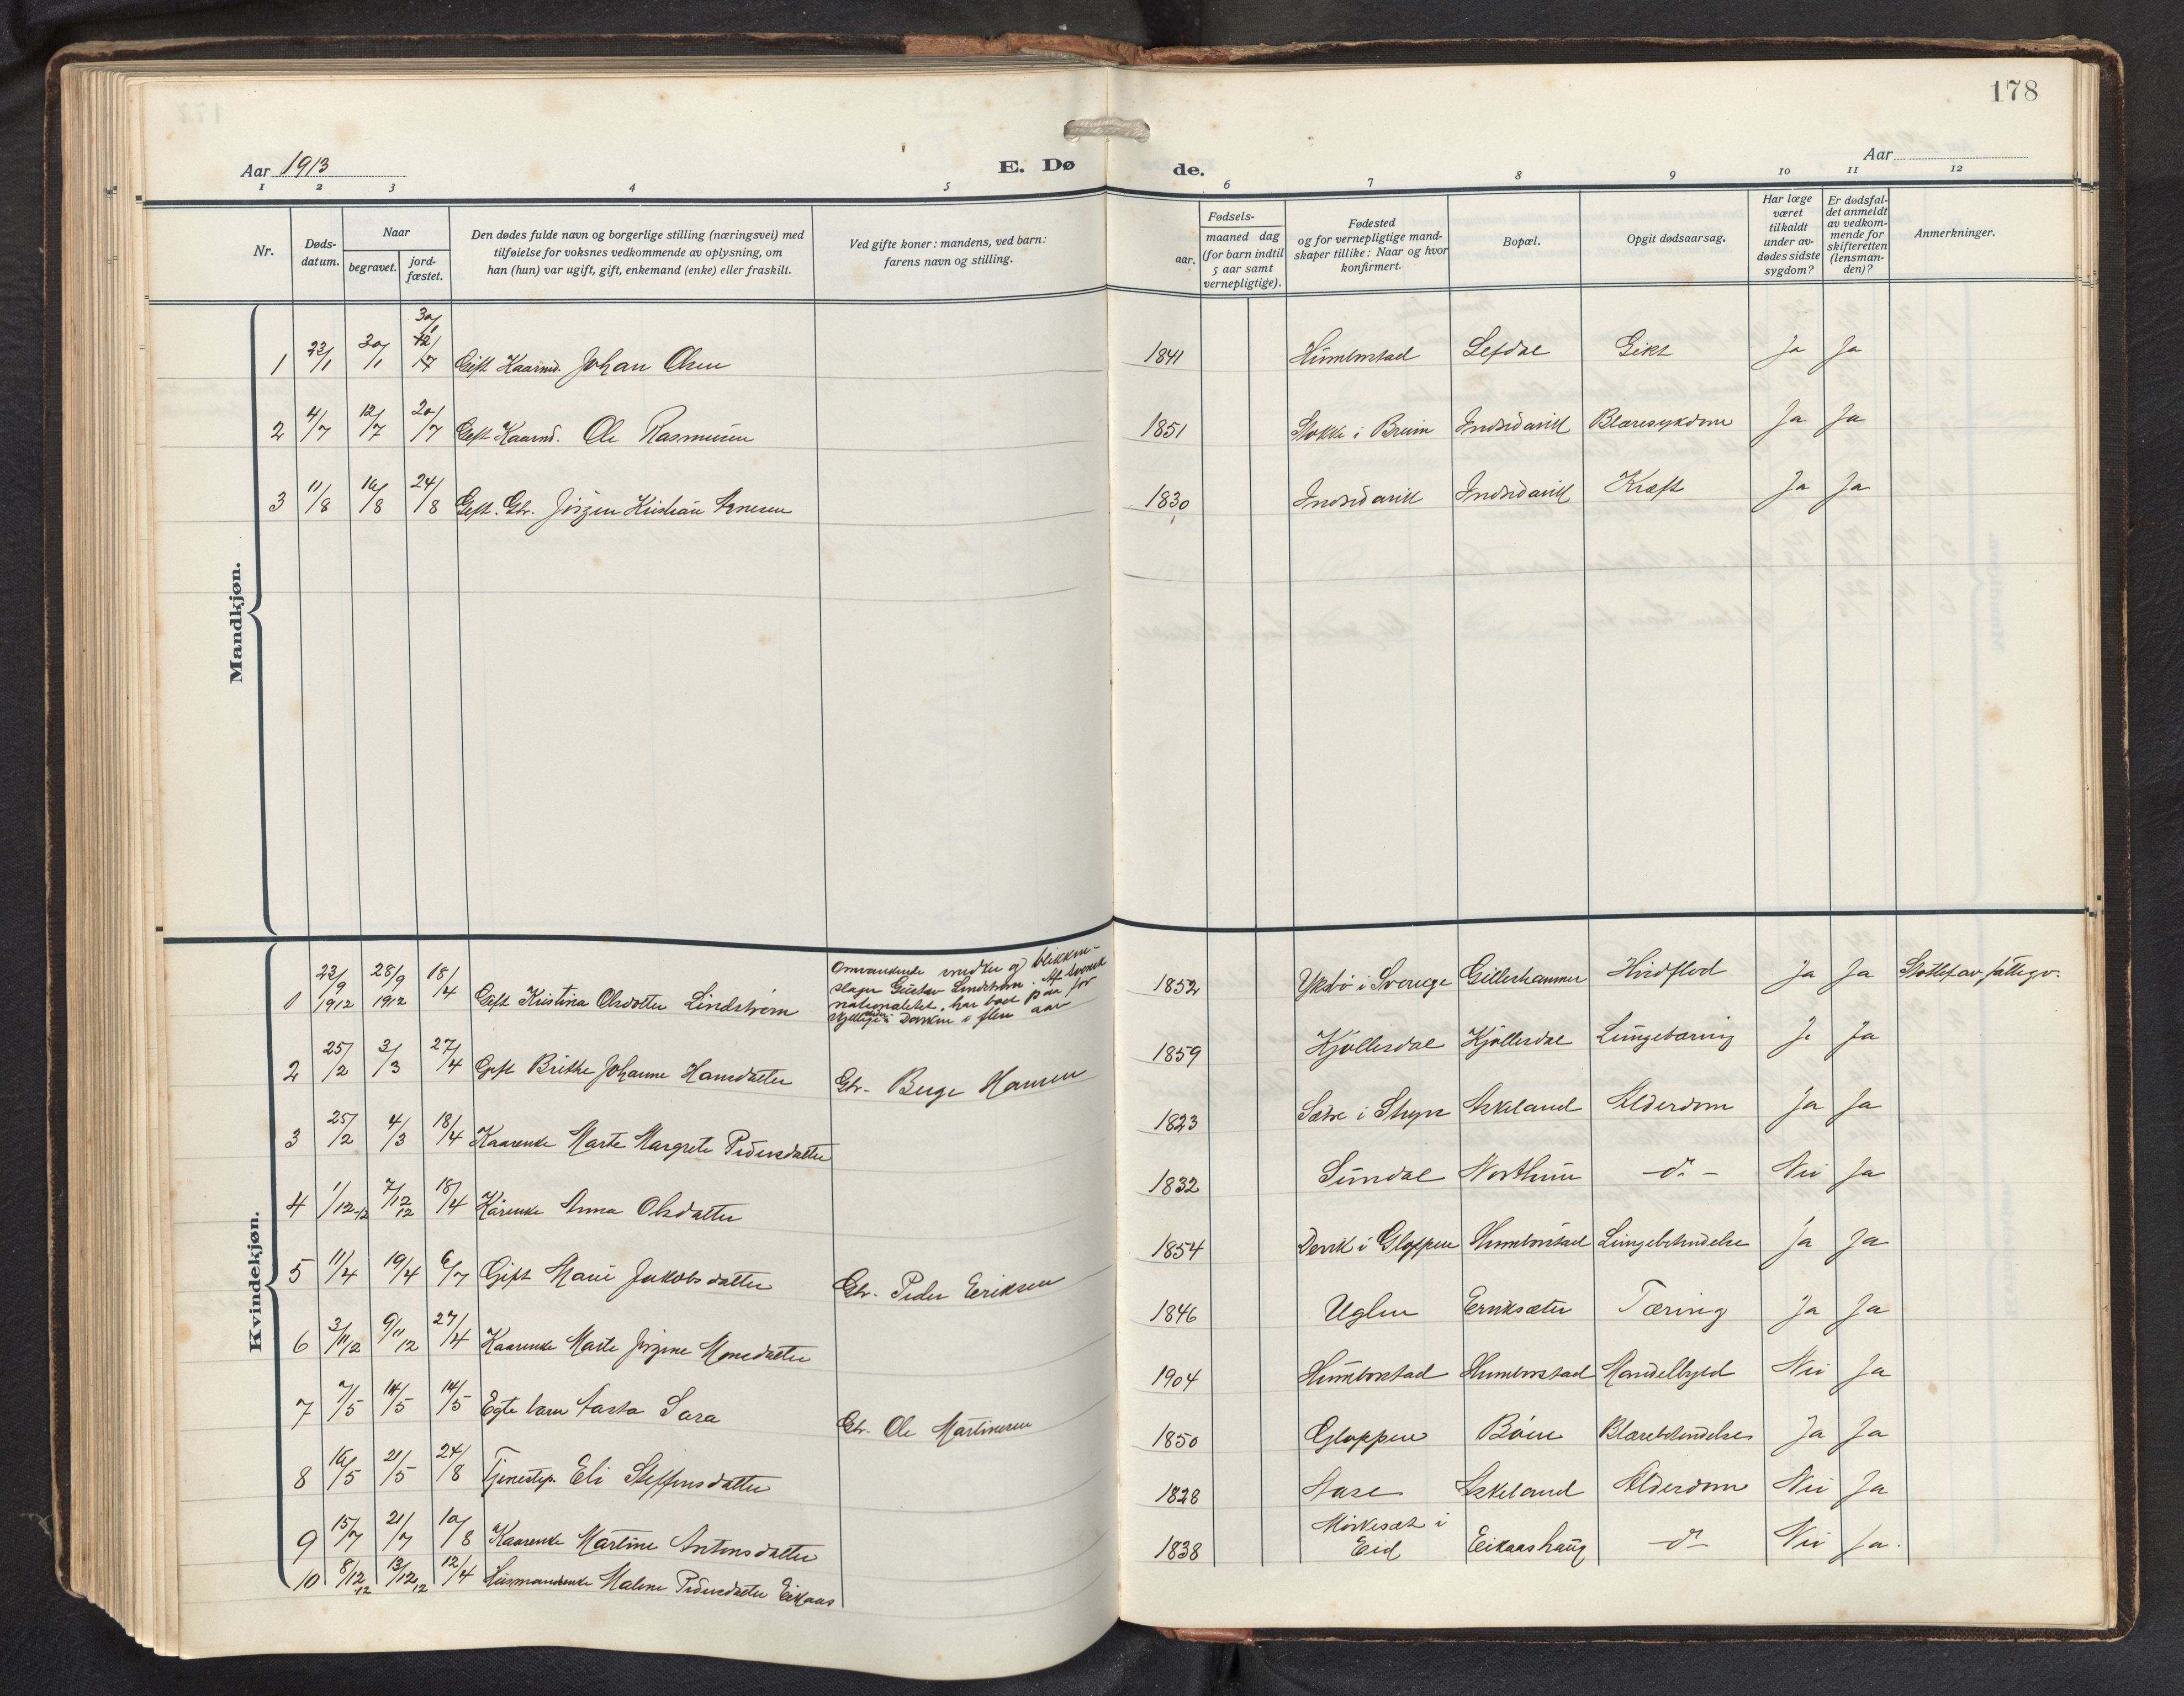 178
Aar 1913
E. Dø de.
Aar
1 2 3 4 5 6 7 8 9 10 11 12
Nr.
Døds-
datum.
Naar
begravet.
jord-
fæstet.
Den dødes fulde navn og borgerlige stilling (næringsvei) med
tilføielse for voksnes vedkommende av oplysning, om
han (hun) var ugift, gift, enkemand (enke) eller fraskilt.
Ved gifte koner: mandens, ved barn:
farens navn og stilling.
Fødsels-
aar.
maaned dag
(for barn indtil
5 aar samt
vernepligtige).
Fødested
og for vernepligtige mand-
skaper tillike: Naar og hvor
konfirmert.
Bopæl.
Opgit dødsaarsag.
Har læge
været
tilkaldt
under av-
dødes sidste
sygdom?
Er dødsfal-
det anmeldt
av vedkom-
mende for
skifteretten
(lensman-
den)?
Anmerkninger.
Mandkjøn.
1 23/1 30/1 30/1 Gift Kaarmd. Johan Olsen 1841 Humborstad Lefdal Gikt Ja Ja
2 4/7 12/7 20/7 Gift Kaarmd. Ole Rasmusen 1851 Stokke i Breim Indredavik Blæresykdom Ja Ja
3 11/8 16/8 24/8 Gift. Gbr. Jørgen Kristian Arnesen 1830 Indredavik Indredavik Kræft Ja Ja
Kvindekjøn.
1 23/9 1912 28/9 1912 18/4 Gift Kristina Olsdatter Lindstrøm
Omvankende smed og blikken-
slager Gustav Lindstrøm. Af svensk
nationalitet, har boet paa for
i Davikn i flere aar
1852 i Sverige Gilleshammer Hvidflod Ja Ja Støttet av fattigv.
2 25/2 3/3 27/4 Gift Brithe Johanne Hansdatter Gbr. Berge Hansen 1859 Kjøllesdal Kjøllesdal Lungetæring Ja Ja
3 25/2 4/3 18/4 Kaarenke Marte Margrete Pedersdatter 1823 Sætre i Stryn Askeland Alderdom Ja Ja
4 1/12-12 7/12 12 18/4 Kårenke Anna Olsdatter 1832 Sundal Northun - do - Nei Ja
5 11/4 19/4 6/7 Gift Marie Jakobsdatter Gbr. Peder Eriksen 1854 Devik i Gloppen Humborstad Lungebetændelse Ja Ja
6 3/11 12 9/11 12 27/4 Kaarenke Marte Jørgine Monsdatter 1846 Uglen Eriksæter Tæring Ja Ja
7 7/5 14/5 14/5 Egte barn Aasta Sara Gbr. Ole Martinusen 1904 Humborstad Humborstad Mandelbyld Nei Ja
8 16/5 21/5 24/8 Tjenestep. Eli Steffensdatter 1850 Gloppen Bøen Blærebetændelse Ja Ja
9 15/7 21/7 10/8 Kaarenke Martine Antonsdatter 1828 Aase Askeland Alderdom Nei Ja
10 8/12 12 13/12 12 12/4 Husmandsenke Malene Pedersdatter Eikaas 1838 Mørkesæt i
Eid Eikaashaug - do - Nei Ja.